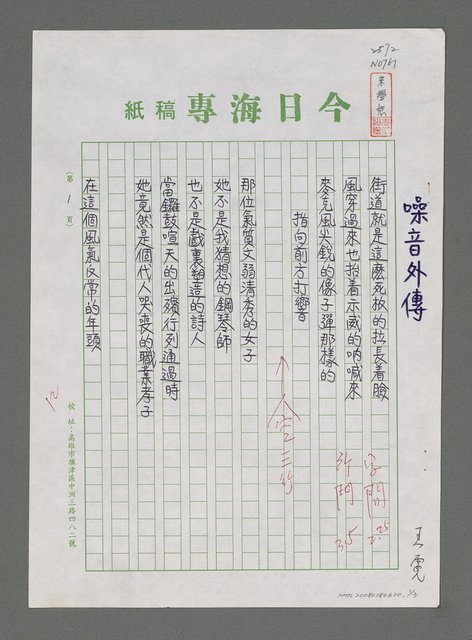 2572
N0761
今日海專稿紙
噪音外傳
王霓
街道就是這麽死板的拉長着臉
風穿過來也抬着示威的吶喊來
麥克風尖銳的像子彈那樣的
指向前方打響
那位氣質文弱清秀的女子
她不是我猜想的鋼琴師
也不是戲裏塑造的詩人
當鑼鼓喧天的出殯行列通過時
她竟然是個代人哭喪的職業孝子
在這個風氣反常的年頭
(第 1 頁)
字間
行間
空三行
12
校址:高雄市旗津區中洲三路四八二號
NMTL20080180620, 1/3